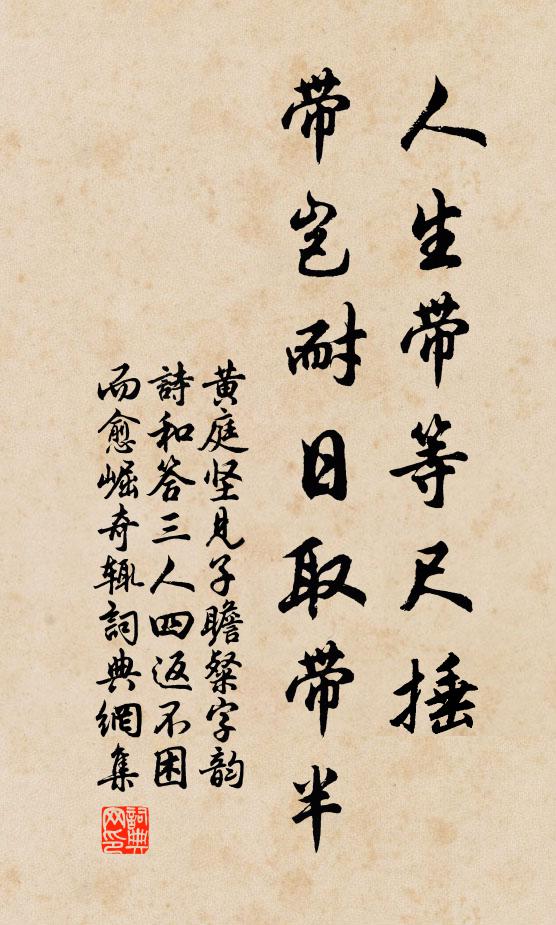 人生带等尺捶
带岂耐日取带半
黄庭坚見子瞻粲字韵
詩和答三人四返不困
而愈崛奇辄詞典網集
詞典
网印